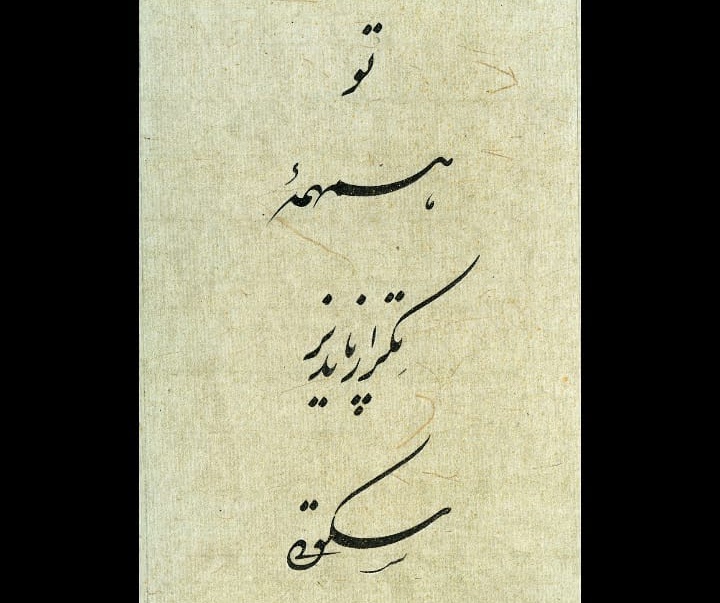 تو
همهمهٔ
تکرارناپذیر
سکوتی